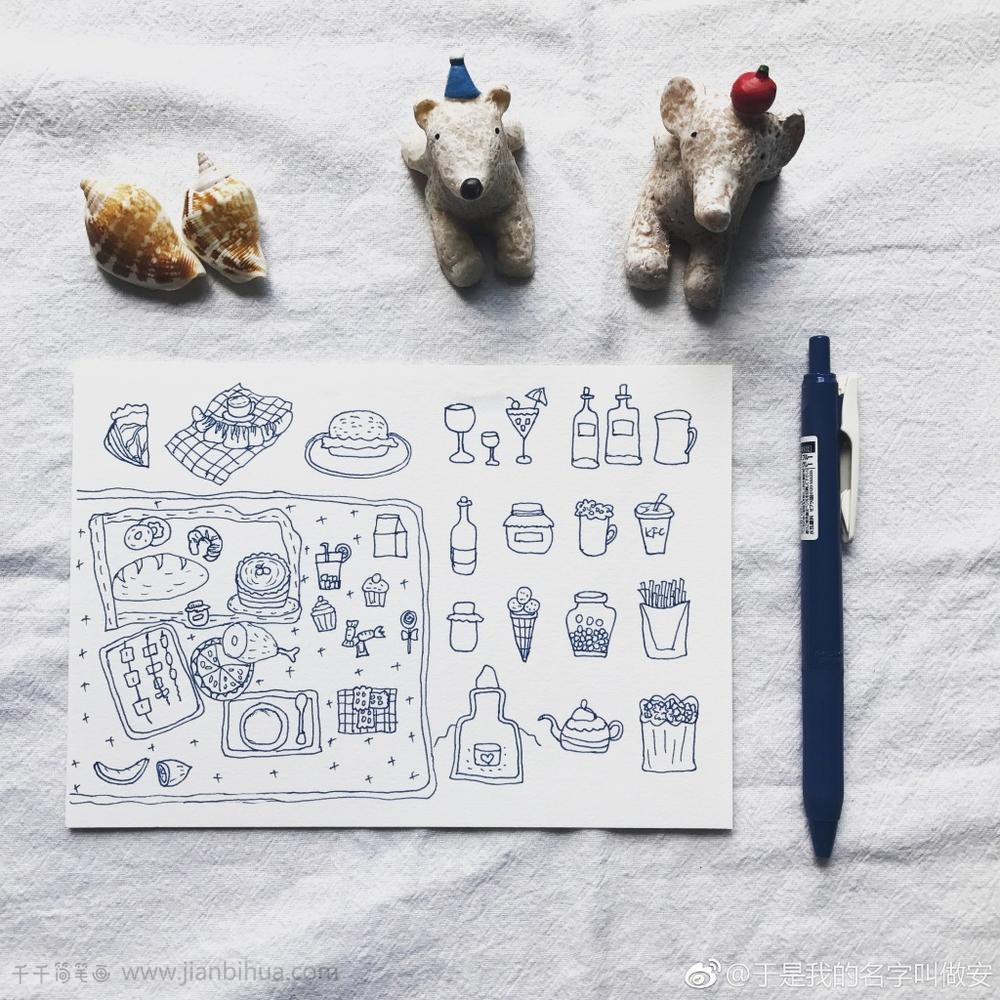 KFC
千千简笔画 www.jianbihua.com
@于是我的名字叫做安